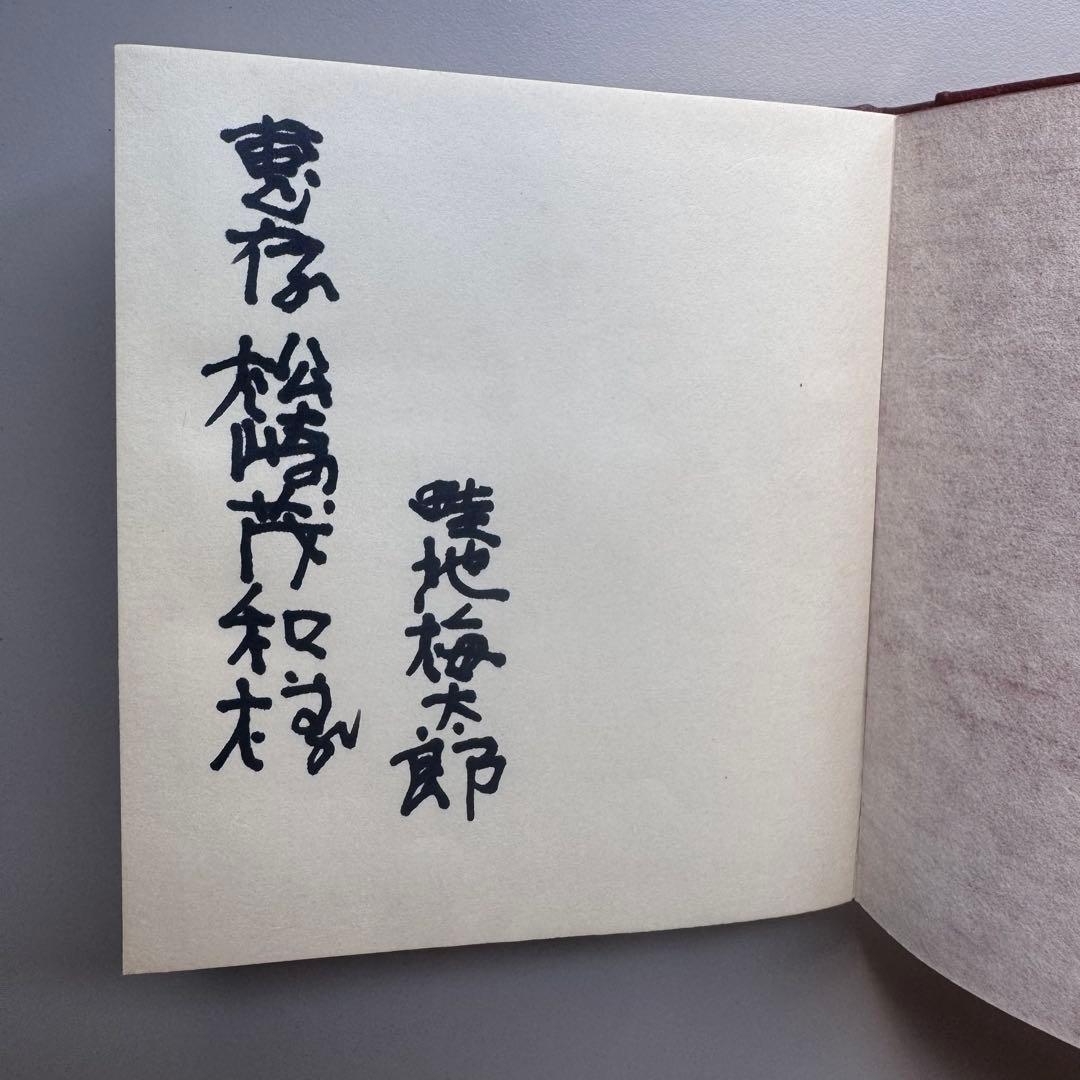 恵存 松崎茂和様
畦地梅太郎